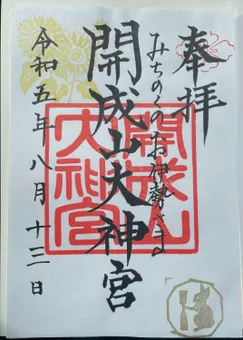 奉拝
みちのくのお伊勢さま
開成山大神宮
開成山大神宮
令和五年八月十三日